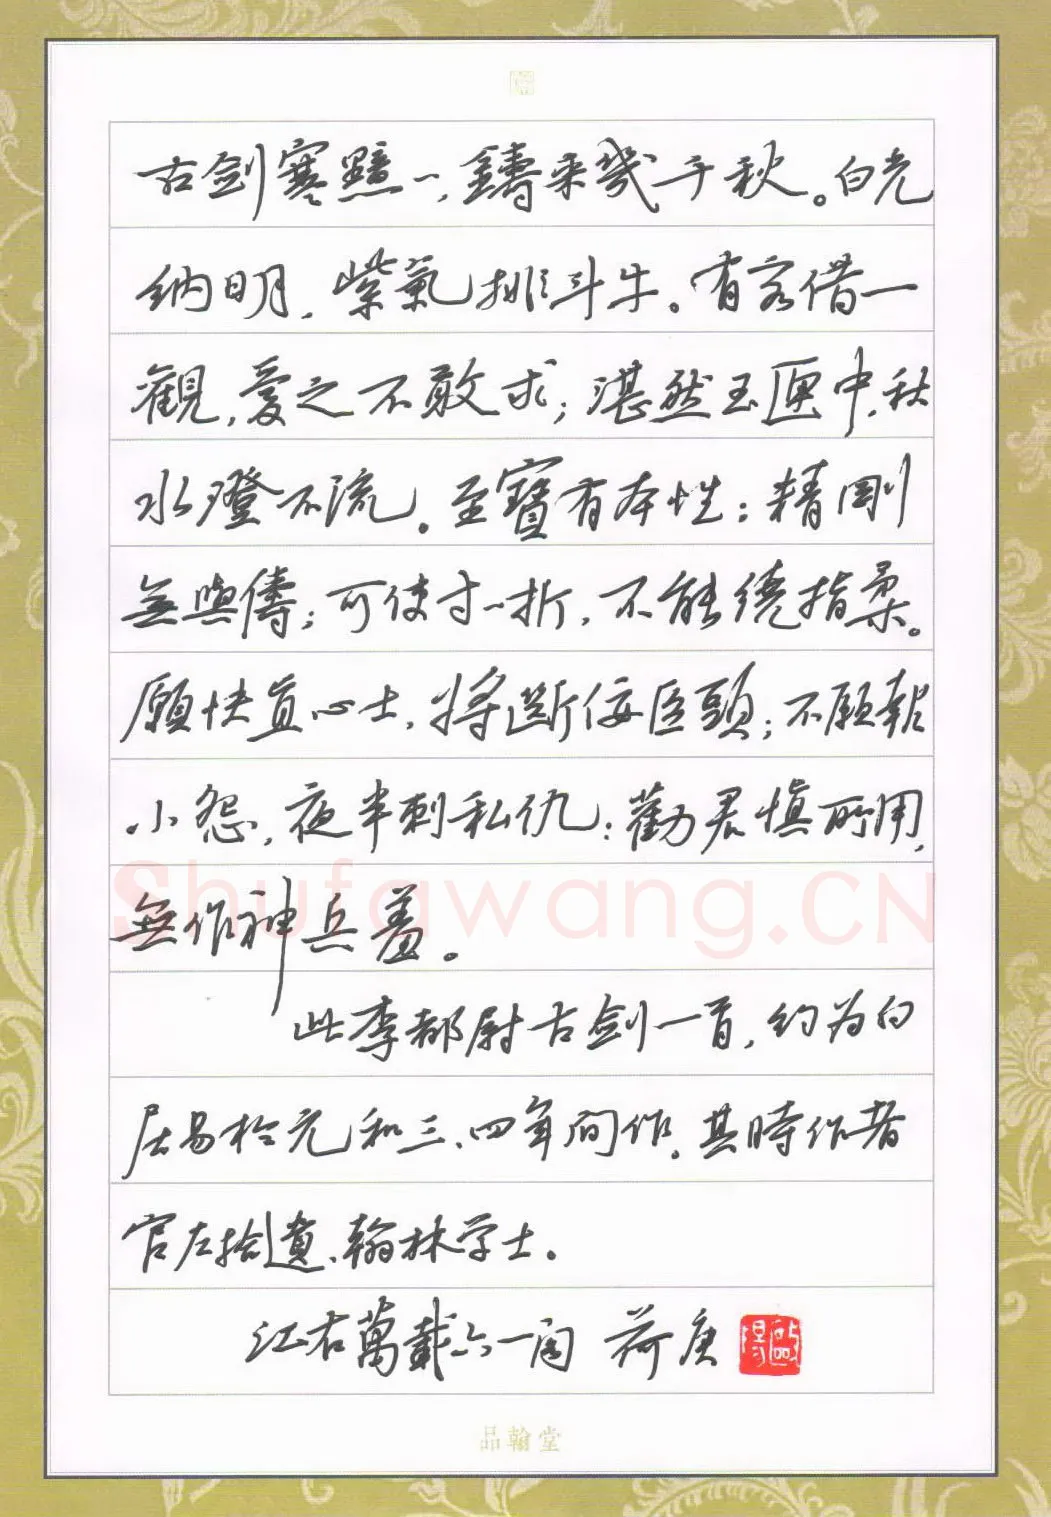 古劍寒黯一,鑄來幾千秋。白光
納日月,紫氣排斗牛。有客借一
觀,愛之不敢求;湛然玉匣中,秋
水澄不流。至寶有本性:精剛
無與儔;可使寸一折,不能繞指柔。
願快直心士,將斷佞臣頭;不願報
小怨,夜半刺私仇:勸君慎所用,
無作神兵羞。
此李都尉古劍一首,約为白
居易於元和三、四年间作。其時作者
官左拾遺、翰林学士。
江右萬載六一阁 荷庚
歐陽
品翰堂
Shufawang.CN